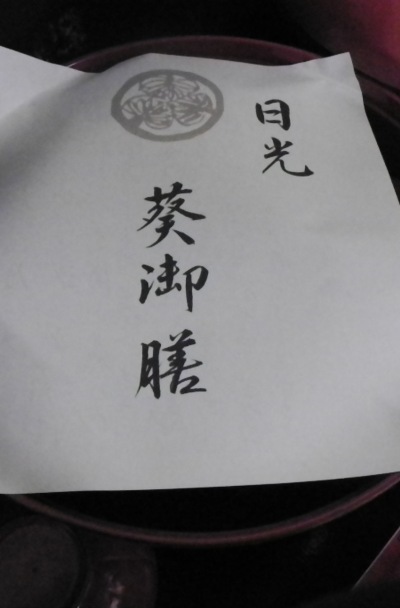 日光
葵御膳